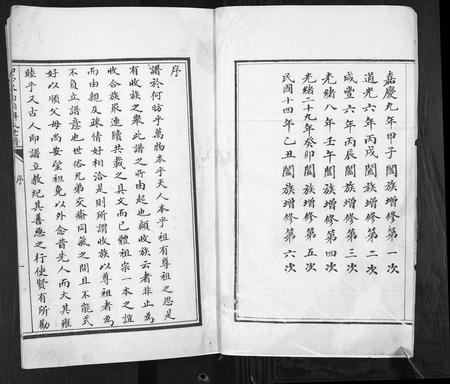 嘉慶九年甲子闔族增修第一次
道光六年丙戌闔族增修第二次
咸豐六年丙辰闔族增修第三次
光緒八年壬午闔族增修第四次
光緒二十九年癸卯闔族增修第五次
民國十四年乙丑闔族增修第六次
序
譜於何昉乎萬物本乎天人本乎祖有尊祖之思是
有收族之舉此譜之所由起也顧收族云者非止為
收合族眾連牘共載之具文而已體祖宗一本之誼
而由親及疎情好相洽是則所謂收族以尊祖者為
不負立譜意也世俗兄弟交瘉同氣之間且不能式
好以順父母尚安望祖免以外念昔先人而大其雍
睦乎又古人即譜立教紀其善惡之行使賢有所勸
序